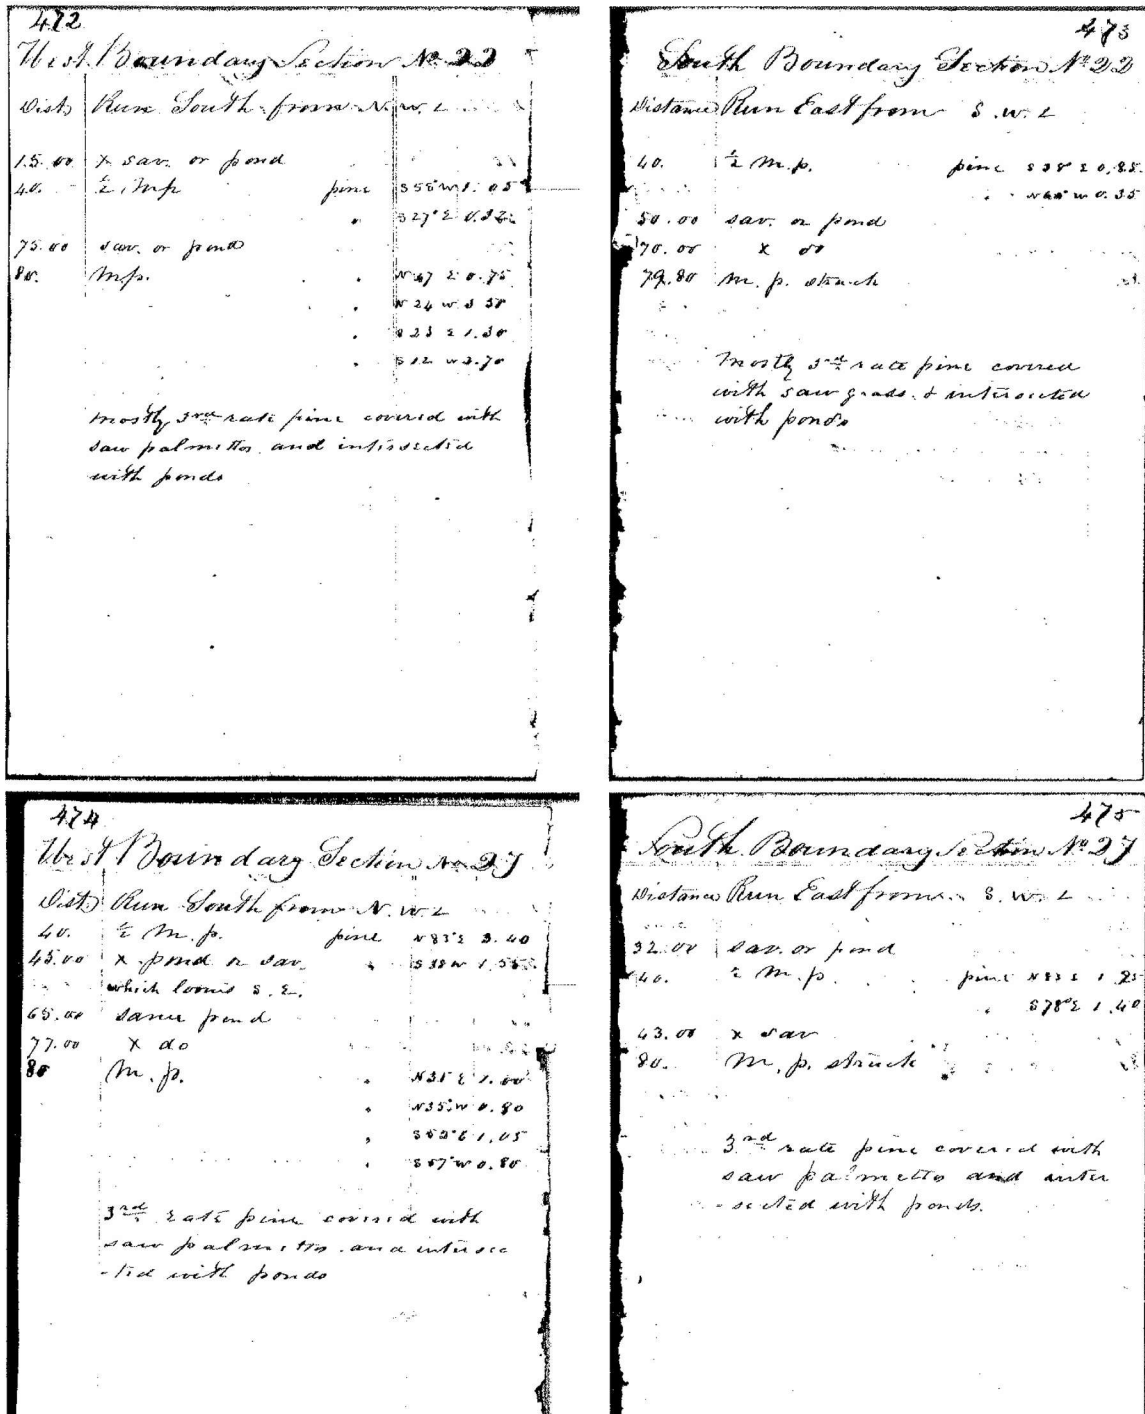 472
West Boundary Section No 22
Dist) Run South from N. W. L
15.00 x sav. or pond
40. ½ Mp pine S 55° W 1.05
" S 27° E 0.32
75.00 sav. or pond
80. Mp. " N 47 E 0.75
" N 24 W 3 50
" S 23 E 1.30
" S 12 W 2.70
mostly 3rd rate pine covered with
saw palmettos and intersected
with ponds
473
South Boundary Section No 22
Distance Run East from S. W. L
40. ½ M.p. pine S 38° E 0.85
" W 0.35
50.00 sav. or pond
70.00 x do
79.80 m. p. struck
Mostly 3rd rate pine covered
with saw grass & intersected
with ponds
474
West Boundary Section No 27
Dist) Run South from N. W. L
40. ½ M. p. pine N 83° E 3.40
45.00 x pond or sav. " S 38 W 1.55
which S. E.
65.00 same pond
77.00 x do
80 M. p. " N 31° E 1.00
" N 35° W 0.80
" E 1.05
" S 57° W 0.80
3rd rate pine covered with
saw palmettos and intersec
-ted with ponds
475
South Boundary Section No 27
Distance Run East from S. W. L
32.00 sav. or pond
40. ½ M. p. pine N 83 E 1.25
" S 78° E 1.40
43.00 x sav
80. M. p. struck
3rd rate pine covered with
saw palmetto and inter
-sected with ponds.